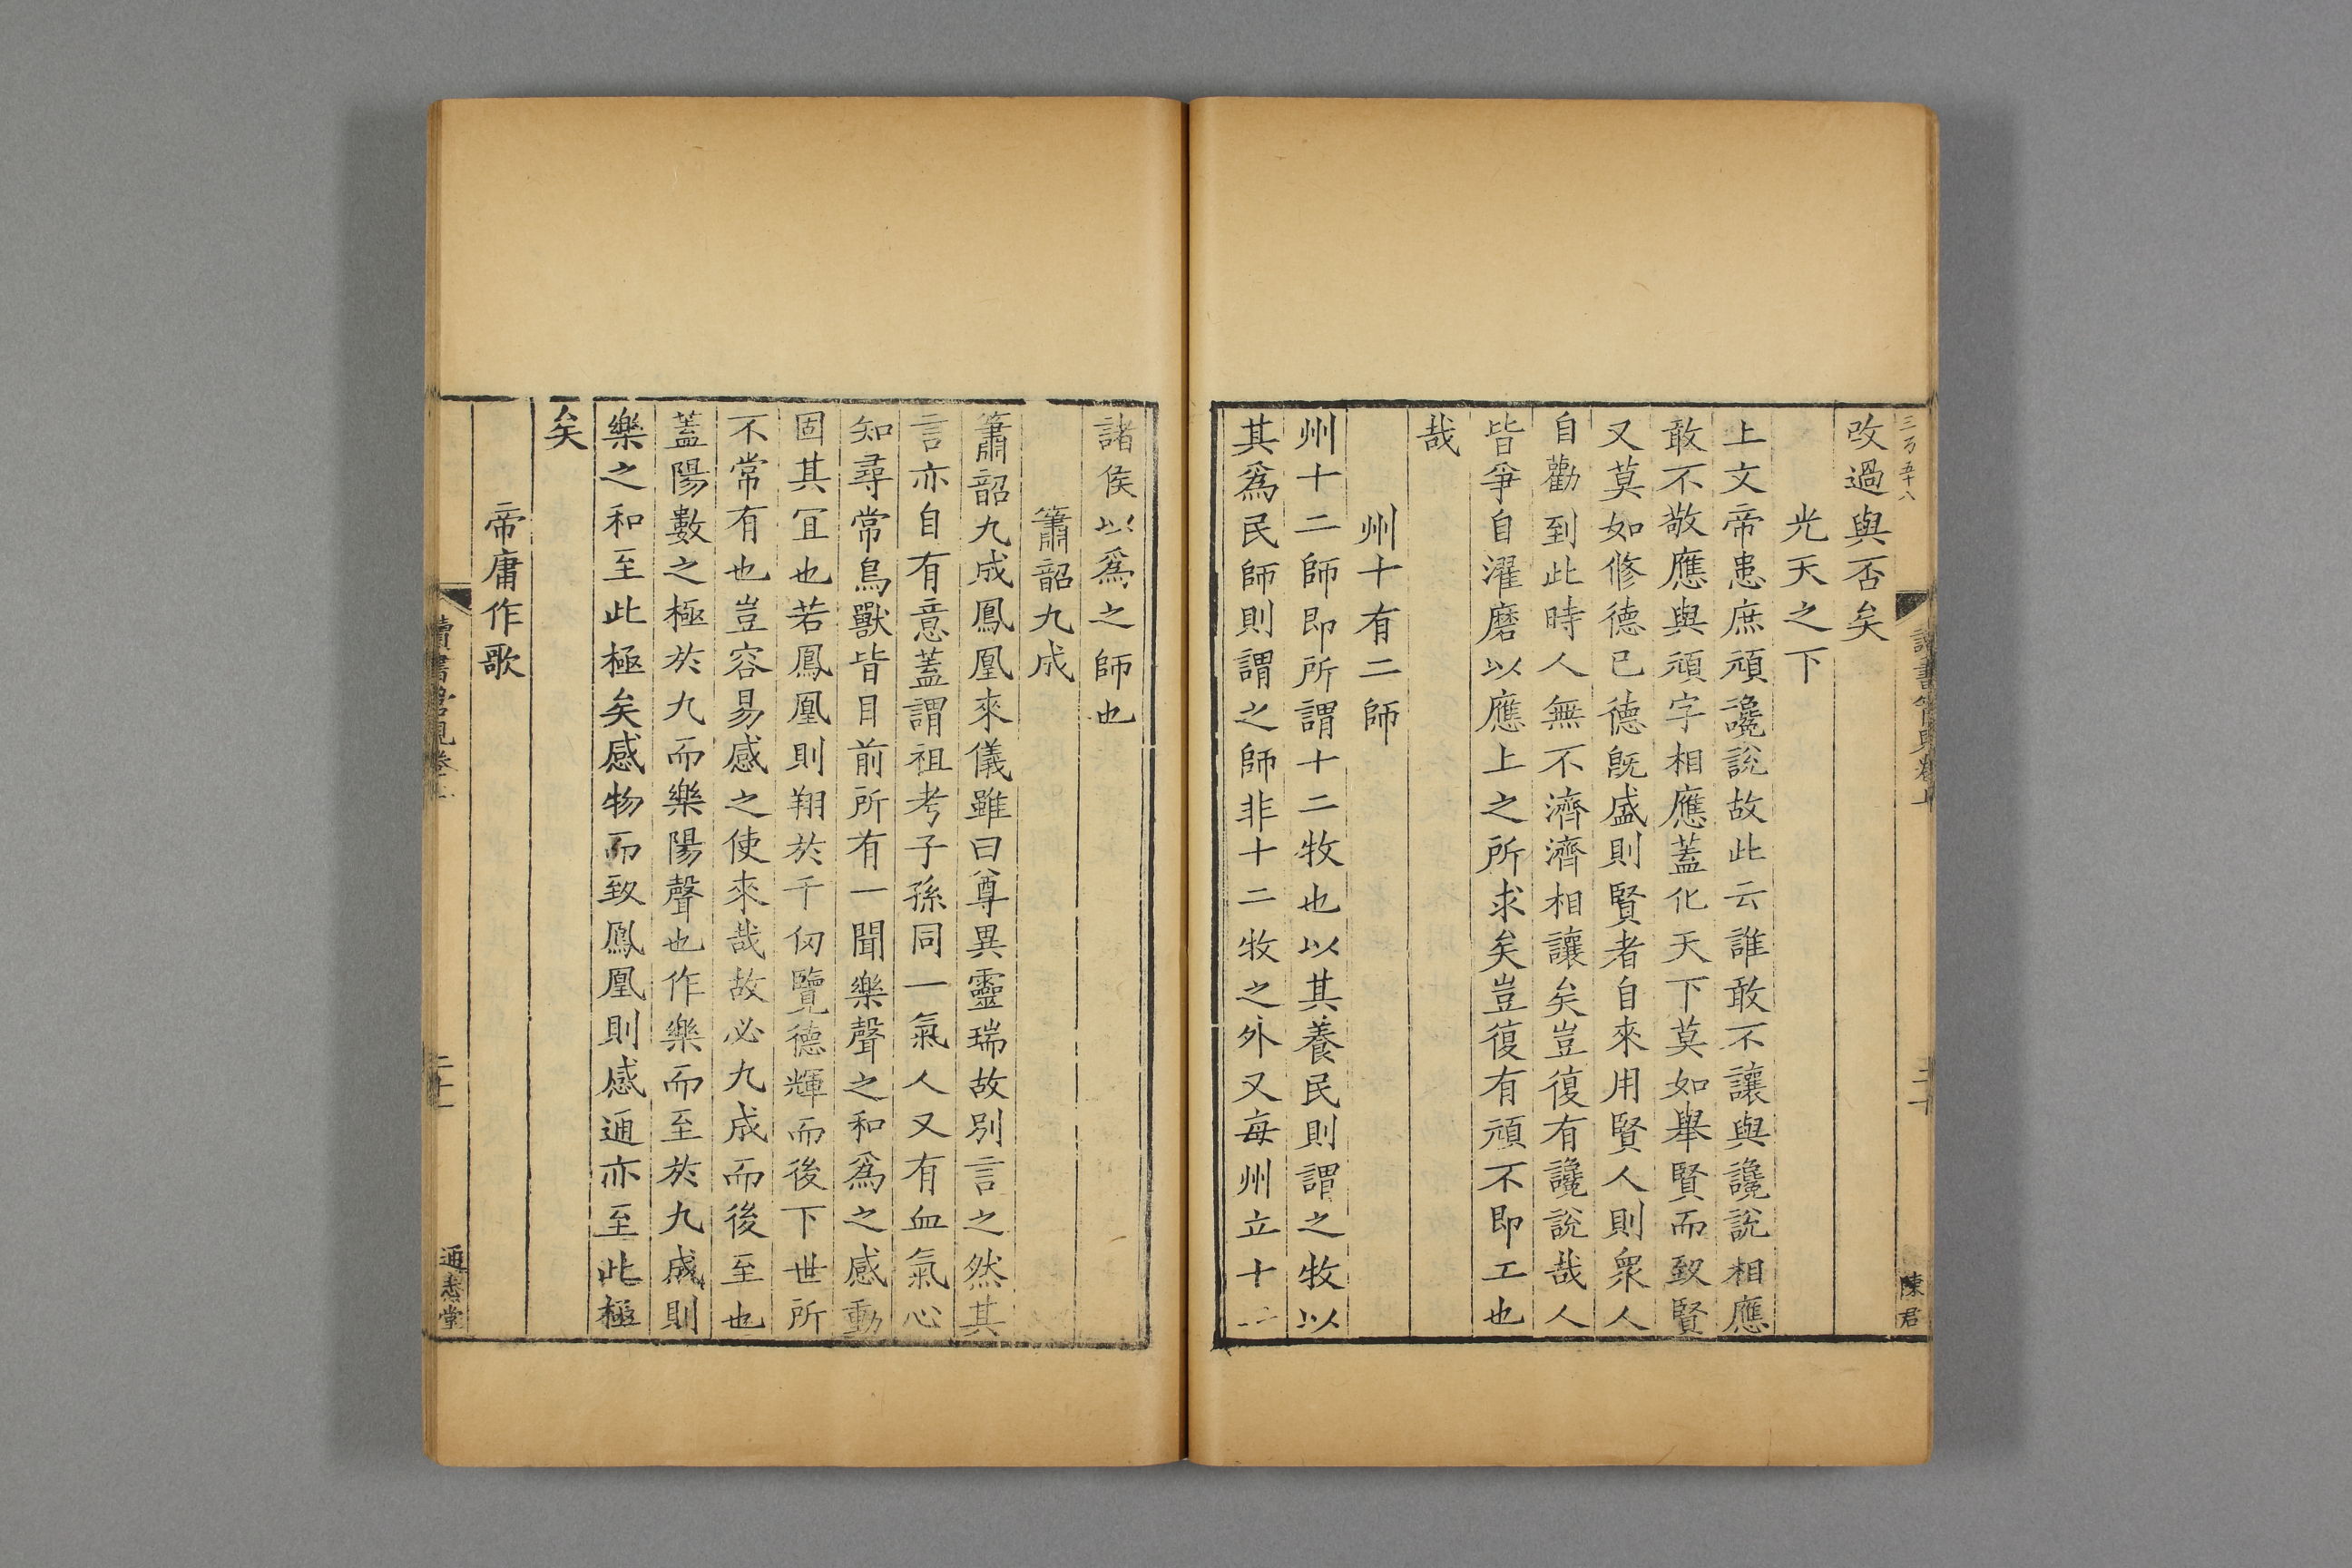 三万五十八
陳君
改過與否矣
光天之下
上文帝患庶頑讒說故此云誰敢不讓與讒說相應
敢不敬應與頑字相應蓋化天下莫如舉賢而致賢
又莫如修德已德既盛則賢者自來用賢人則衆人
自勸到此時人無不濟濟相讓矣豈復有讒說哉人
皆爭自濯磨以應上之所求矣豈復有頑不即工也
哉
州十有二師
州十二師即所謂十二牧也以其養民則謂之牧以
其爲民師則謂之師非十二牧之外又每州立十二
諸侯以爲之師也
簫韶九成
簫韶九成鳳凰來儀雖曰尊異靈瑞故別言之然其
言亦自有意蓋謂祖考子孫同一氣人又有血氣心
知尋常鳥獸皆目前所有一聞樂聲之和爲之感動
固其冝也若鳳凰則翔於千仞覽德輝而後下世所
不常有也豈容易感之使來哉故必九成而後至也
蓋陽數之極於九而樂陽聲也作樂而至於九成則
樂之和至此極矣感物而致鳳凰則感通亦至此極
矣
帝庸作歌
讀書管見卷上
二十一
通志堂